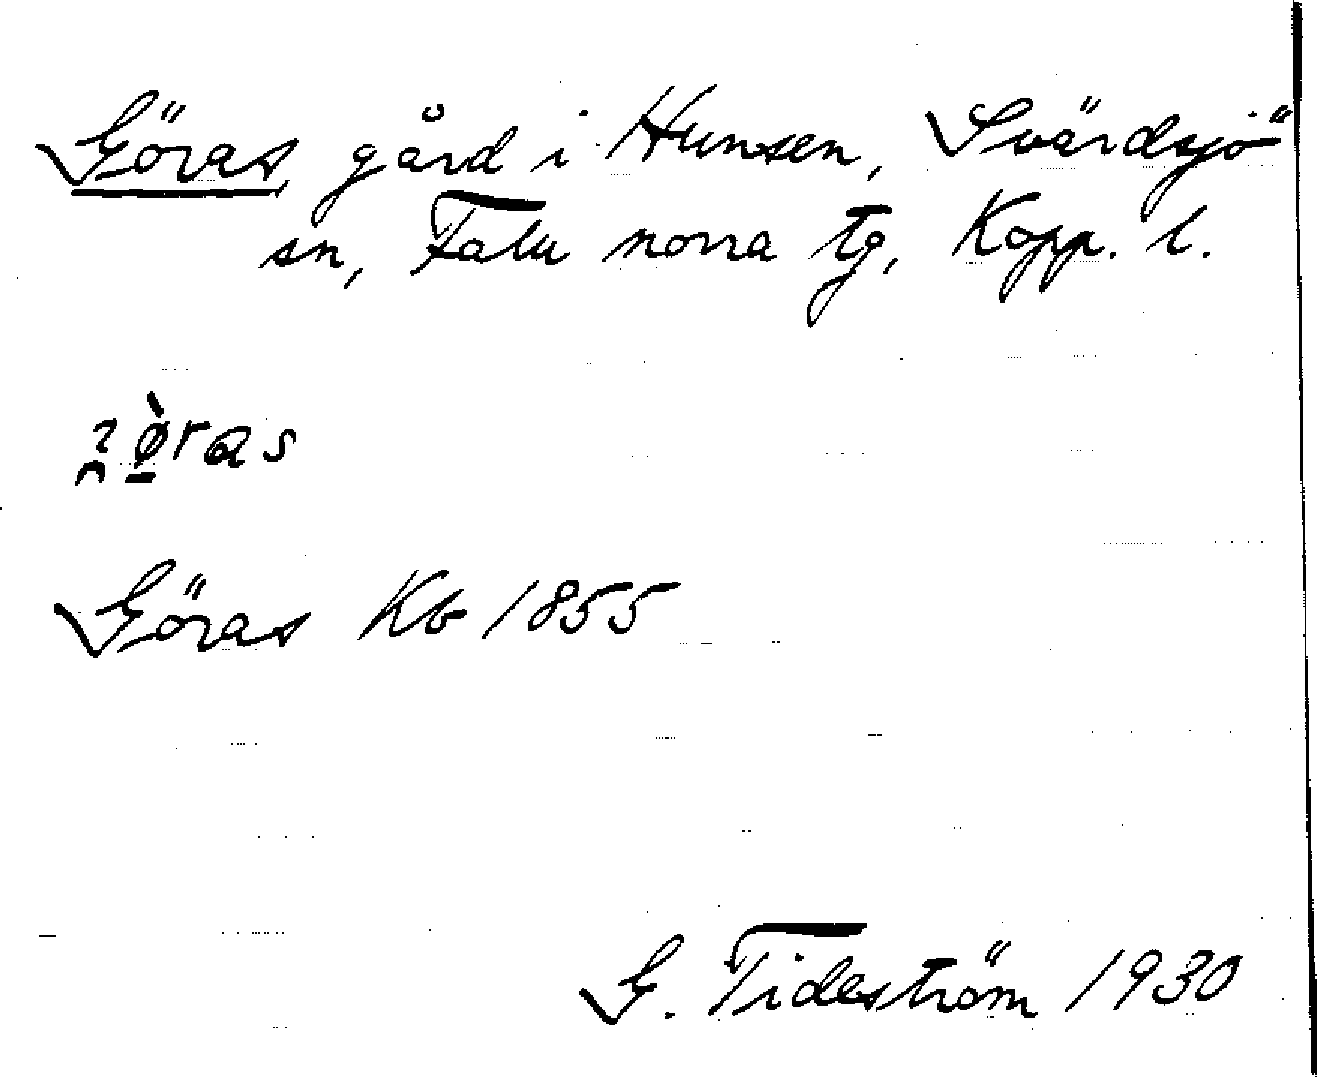 Göras, gård i Hunsen, Svärdsjö
sn, Falu norra tg, Kopp. l.
Göras Kb 1855
G. Tideström 1930